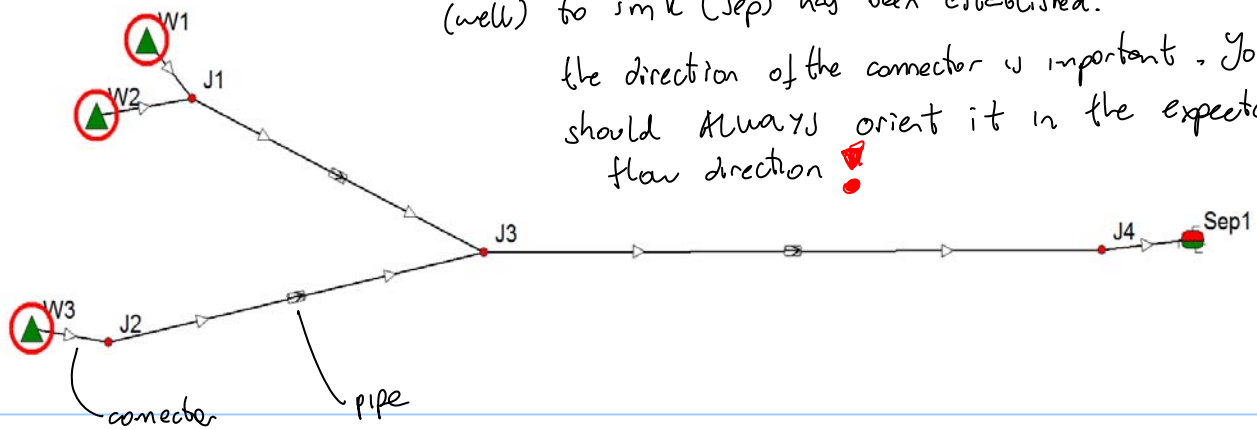 (well) to sink (Sep) has been established.
the direction of the connector is important. Yo
should ALWAYS orient it in the expecte
flow direction !
W1
J1
W2
J3
J4
Sep1
W3
J2
connector
pipe